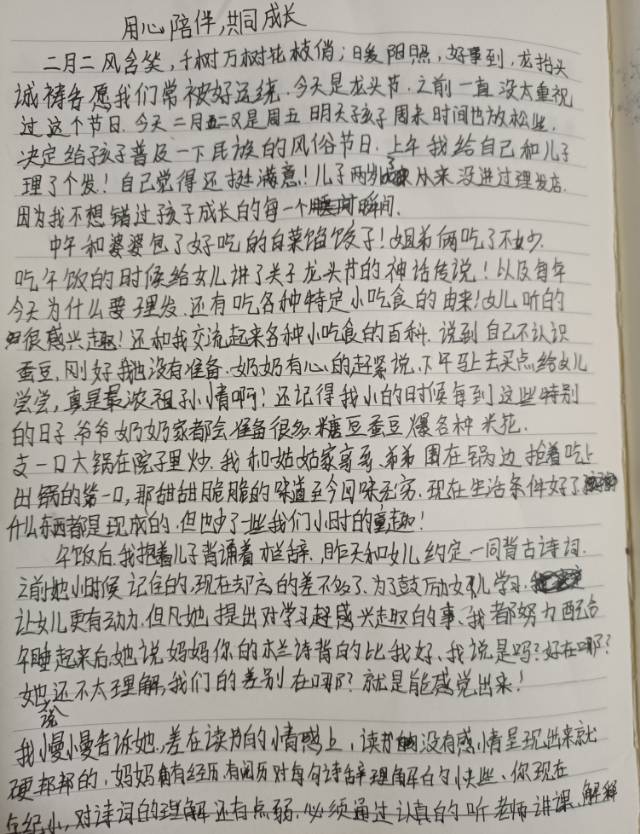 用心陪伴,共同成长
二月二风含笑,千树万树花枝俏;日暖阳照,好事到,龙抬头
诚祷告愿我们常被好运绕.今天是龙头节.之前一直没太重视
过这个节日.今天二月二又是周五明天孩子周末时间也放松些.
决定给孩子普及一下民族的风俗节日.上午我给自己和儿子
理了个发!自己觉得还挺满意!儿子两岁从来没进过理发店.
因为我不想错过孩子成长的每一个瞬间.
中午和婆婆包了好吃的白菜馅饺子!姐弟俩吃了不少.
吃午饭的时候给女儿讲了关于龙头节的神话传说!以及每年
今天为什么要理发.还有吃各种特定小吃食的由来!女儿听的
很感兴趣!还和我交流起来各种小吃食的百科.说到自己不认识
蚕豆,刚好我也没有准备.奶奶有心的赶紧说,下午马上去买点给女儿
尝尝,真是最浓祖孙情啊!还记得我小的时候每到这些特别
的日子爷爷奶奶家都会准备很多糖豆蚕豆爆各种米花.
支一口大锅在院子里炒.我和姑姑家哥哥弟弟围在锅边抢着吃上
出锅的第一口,那甜甜脆脆的味道至今回味无穷.现在生活条件好了
什么东西都是现成的.但也少了一些我们小时的童趣!
午饭后.我抱着儿子背诵着木兰辞.昨天和女儿约定一同背古诗词.
之前她小时候记住的,现在却忘的差不多了.为了鼓励女儿学习.
让女儿更有动力.但凡她提出对学习感兴趣的事、我都努力配合
午睡起来后她说妈妈你的木兰诗背的比我好、我说是吗?好在哪?
她还不太理解我们的差别在哪?就是能感觉出来!
我慢慢告诉她.差在读的情感上,读的没有感情呈现出来就
硬邦邦的,妈妈有经历有阅历对每句诗辞理解的快些、你现在
年纪小,对诗词的理解还有点弱.必须通过认真的听老师讲课.解释